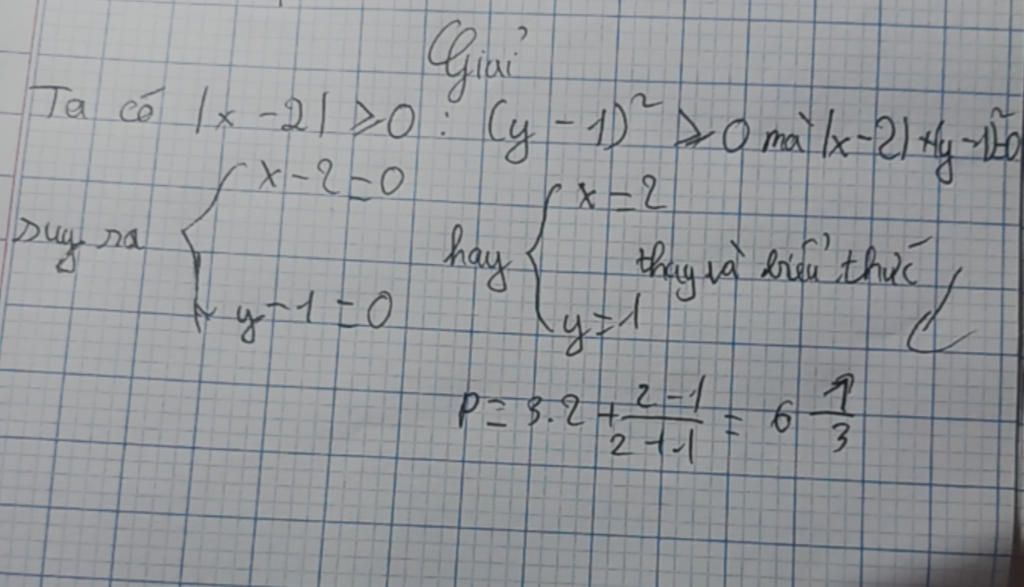 Giải
Ta có |x - 2| ≥ 0 : (y - 1)² ≥ 0 mà |x - 2| + (y - 1)² = 0
suy ra { x - 2 = 0 hay { x = 2
thay và biểu thức
y - 1 = 0 y = 1
P = 3.2 + \frac{2 - 1}{2 + 1} = 6 \frac{1}{3}